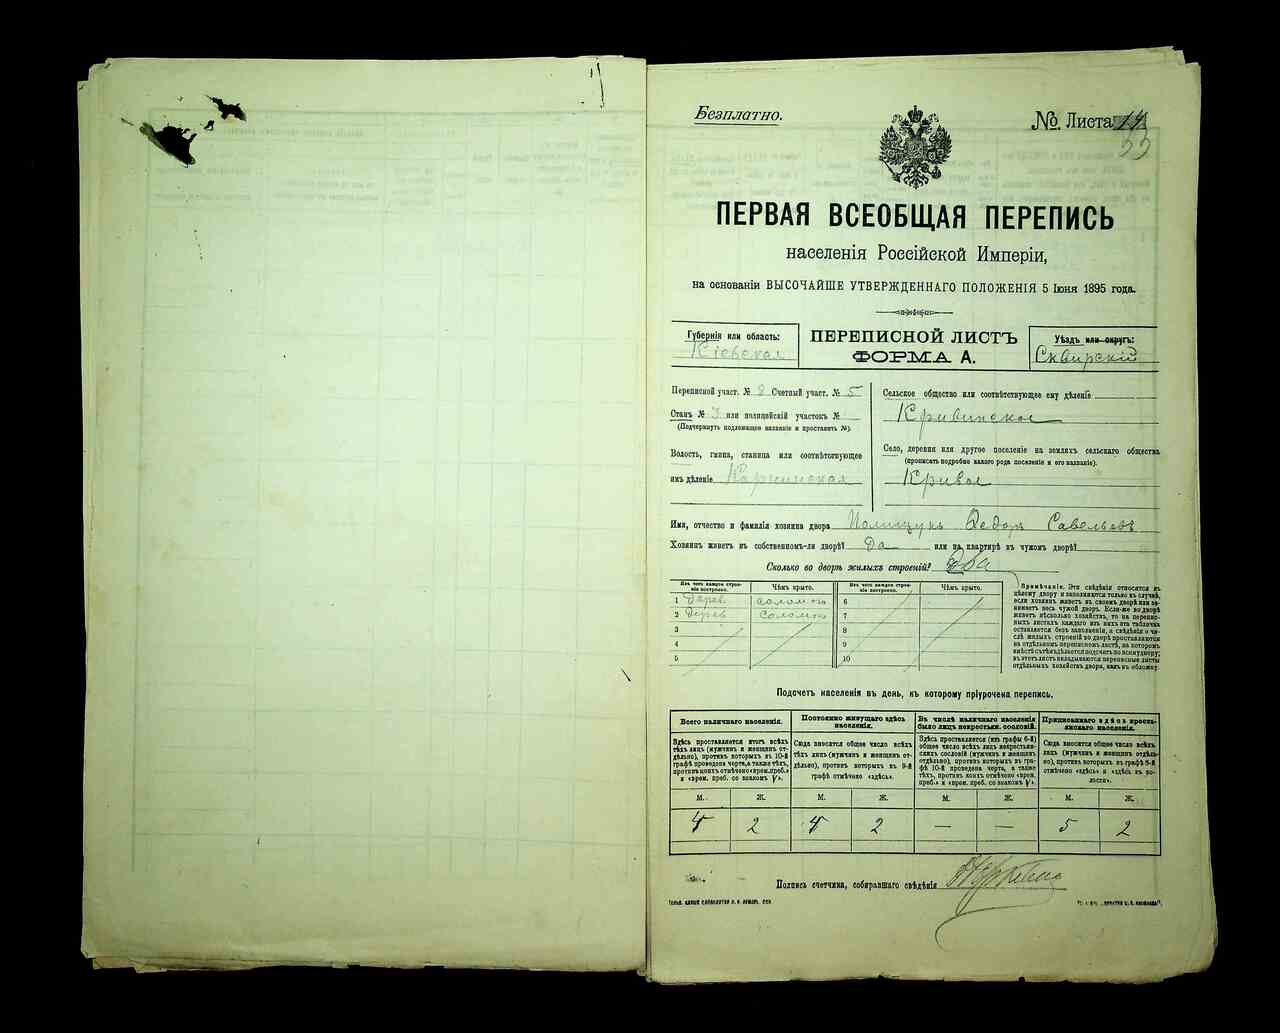 Безплатно.
№ Листа 14
ПЕРВАЯ ВСЕОБЩАЯ ПЕРЕПИСЬ
населенія Россійской Имперіи,
на основаніи ВЫСОЧАЙШЕ УТВЕРЖДЕННАГО ПОЛОЖЕНІЯ 5 Іюня 1895 года.
Губернія или область:
Кіевская
ПЕРЕПИСНОЙ ЛИСТЪ
ФОРМА А.
Уѣздъ или округъ:
Сквирскій
Переписной участ. № 8 Счетный участ. № 5
Станъ № 3 или полицейскій участокъ №
(Подчеркнуть подлежащее названіе и проставить №).
Волость, гмина, станица или соотвѣтствующее
имъ дѣленіе
Сельское общество или соотвѣтствующее ему дѣленіе
Кривинское
Село, деревня или другое поселеніе на земляхъ сельскаго общества
(прописать подробно какого рода поселеніе и его названіе).
Кривое
Имя, отчество и фамилія хозяина двора Полищукъ Ѳедоръ Савельевъ
Хозяинъ живетъ въ собственномъ-ли дворѣ? Да или на квартирѣ въ чужомъ дворѣ?
Сколько во дворѣ жилыхъ строеній? Два
Изъ чего каждое строеніе построено. Чѣмъ крыто. Изъ чего каждое строеніе построено. Чѣмъ крыто.
1 Дерев. соломою 6
2 Дерев. соломою 7
3 8
4 9
5 10
Примѣчаніе. Эти свѣдѣнія относятся къ
цѣлому двору и заполняются только въ случаѣ,
если хозяинъ живетъ въ своемъ дворѣ или занимаетъ
весь чужой дворъ. Если-же во дворѣ
живетъ нѣсколько хозяйствъ, то на переписныхъ
листахъ каждаго изъ нихъ эта табличка
оставляется безъ заполненія, а свѣдѣнія о числѣ
жилыхъ строеній во дворѣ проставляются
на отдѣльномъ переписномъ листѣ, на которомъ
вмѣстѣ съ тѣмъ дѣлается подсчетъ по всему двору;
въ этотъ листъ вкладываются переписные листы
отдѣльныхъ хозяйствъ двора, какъ въ обложку.
Подсчетъ населенія въ день, къ которому пріурочена перепись.
Всего наличнаго населенія.
Здѣсь проставляется итогъ всѣхъ
тѣхъ лицъ (мужчинъ и женщинъ отдѣльно),
противъ которыхъ въ 10-й
графѣ проведена черта, а также тѣхъ,
противъ коихъ отмѣчено «врем. преб.»
и «врем. преб. со знакомъ V».
Постоянно живущаго здѣсь
населенія.
Сюда вносится общее число всѣхъ
тѣхъ лицъ (мужчинъ и женщинъ отдѣльно),
противъ которыхъ въ 9-й
графѣ отмѣчено «здѣсь».
Въ числѣ наличнаго населенія
было лицъ некрестьян. сословій.
Здѣсь проставляется (изъ графы 6-й)
общее число всѣхъ лицъ некрестьянскихъ
сословій (мужчинъ и женщинъ
отдѣльно), противъ которыхъ въ графѣ
10-й проведена черта, а также
тѣхъ, противъ коихъ отмѣчено «врем.
преб.» и «врем. преб. со знакомъ V».
Приписаннаго здѣсь крестьянскаго
населенія.
Сюда вносится общее число всѣхъ
лицъ (мужчинъ и женщинъ отдѣльно),
противъ которыхъ въ графѣ 8-й
отмѣчено «здѣсь» и «здѣсь въ волости».
М. Ж. М. Ж. М. Ж. М. Ж.
4 2 4 2 — — 5 2
Подпись счетчика, собиравшаго свѣдѣнія